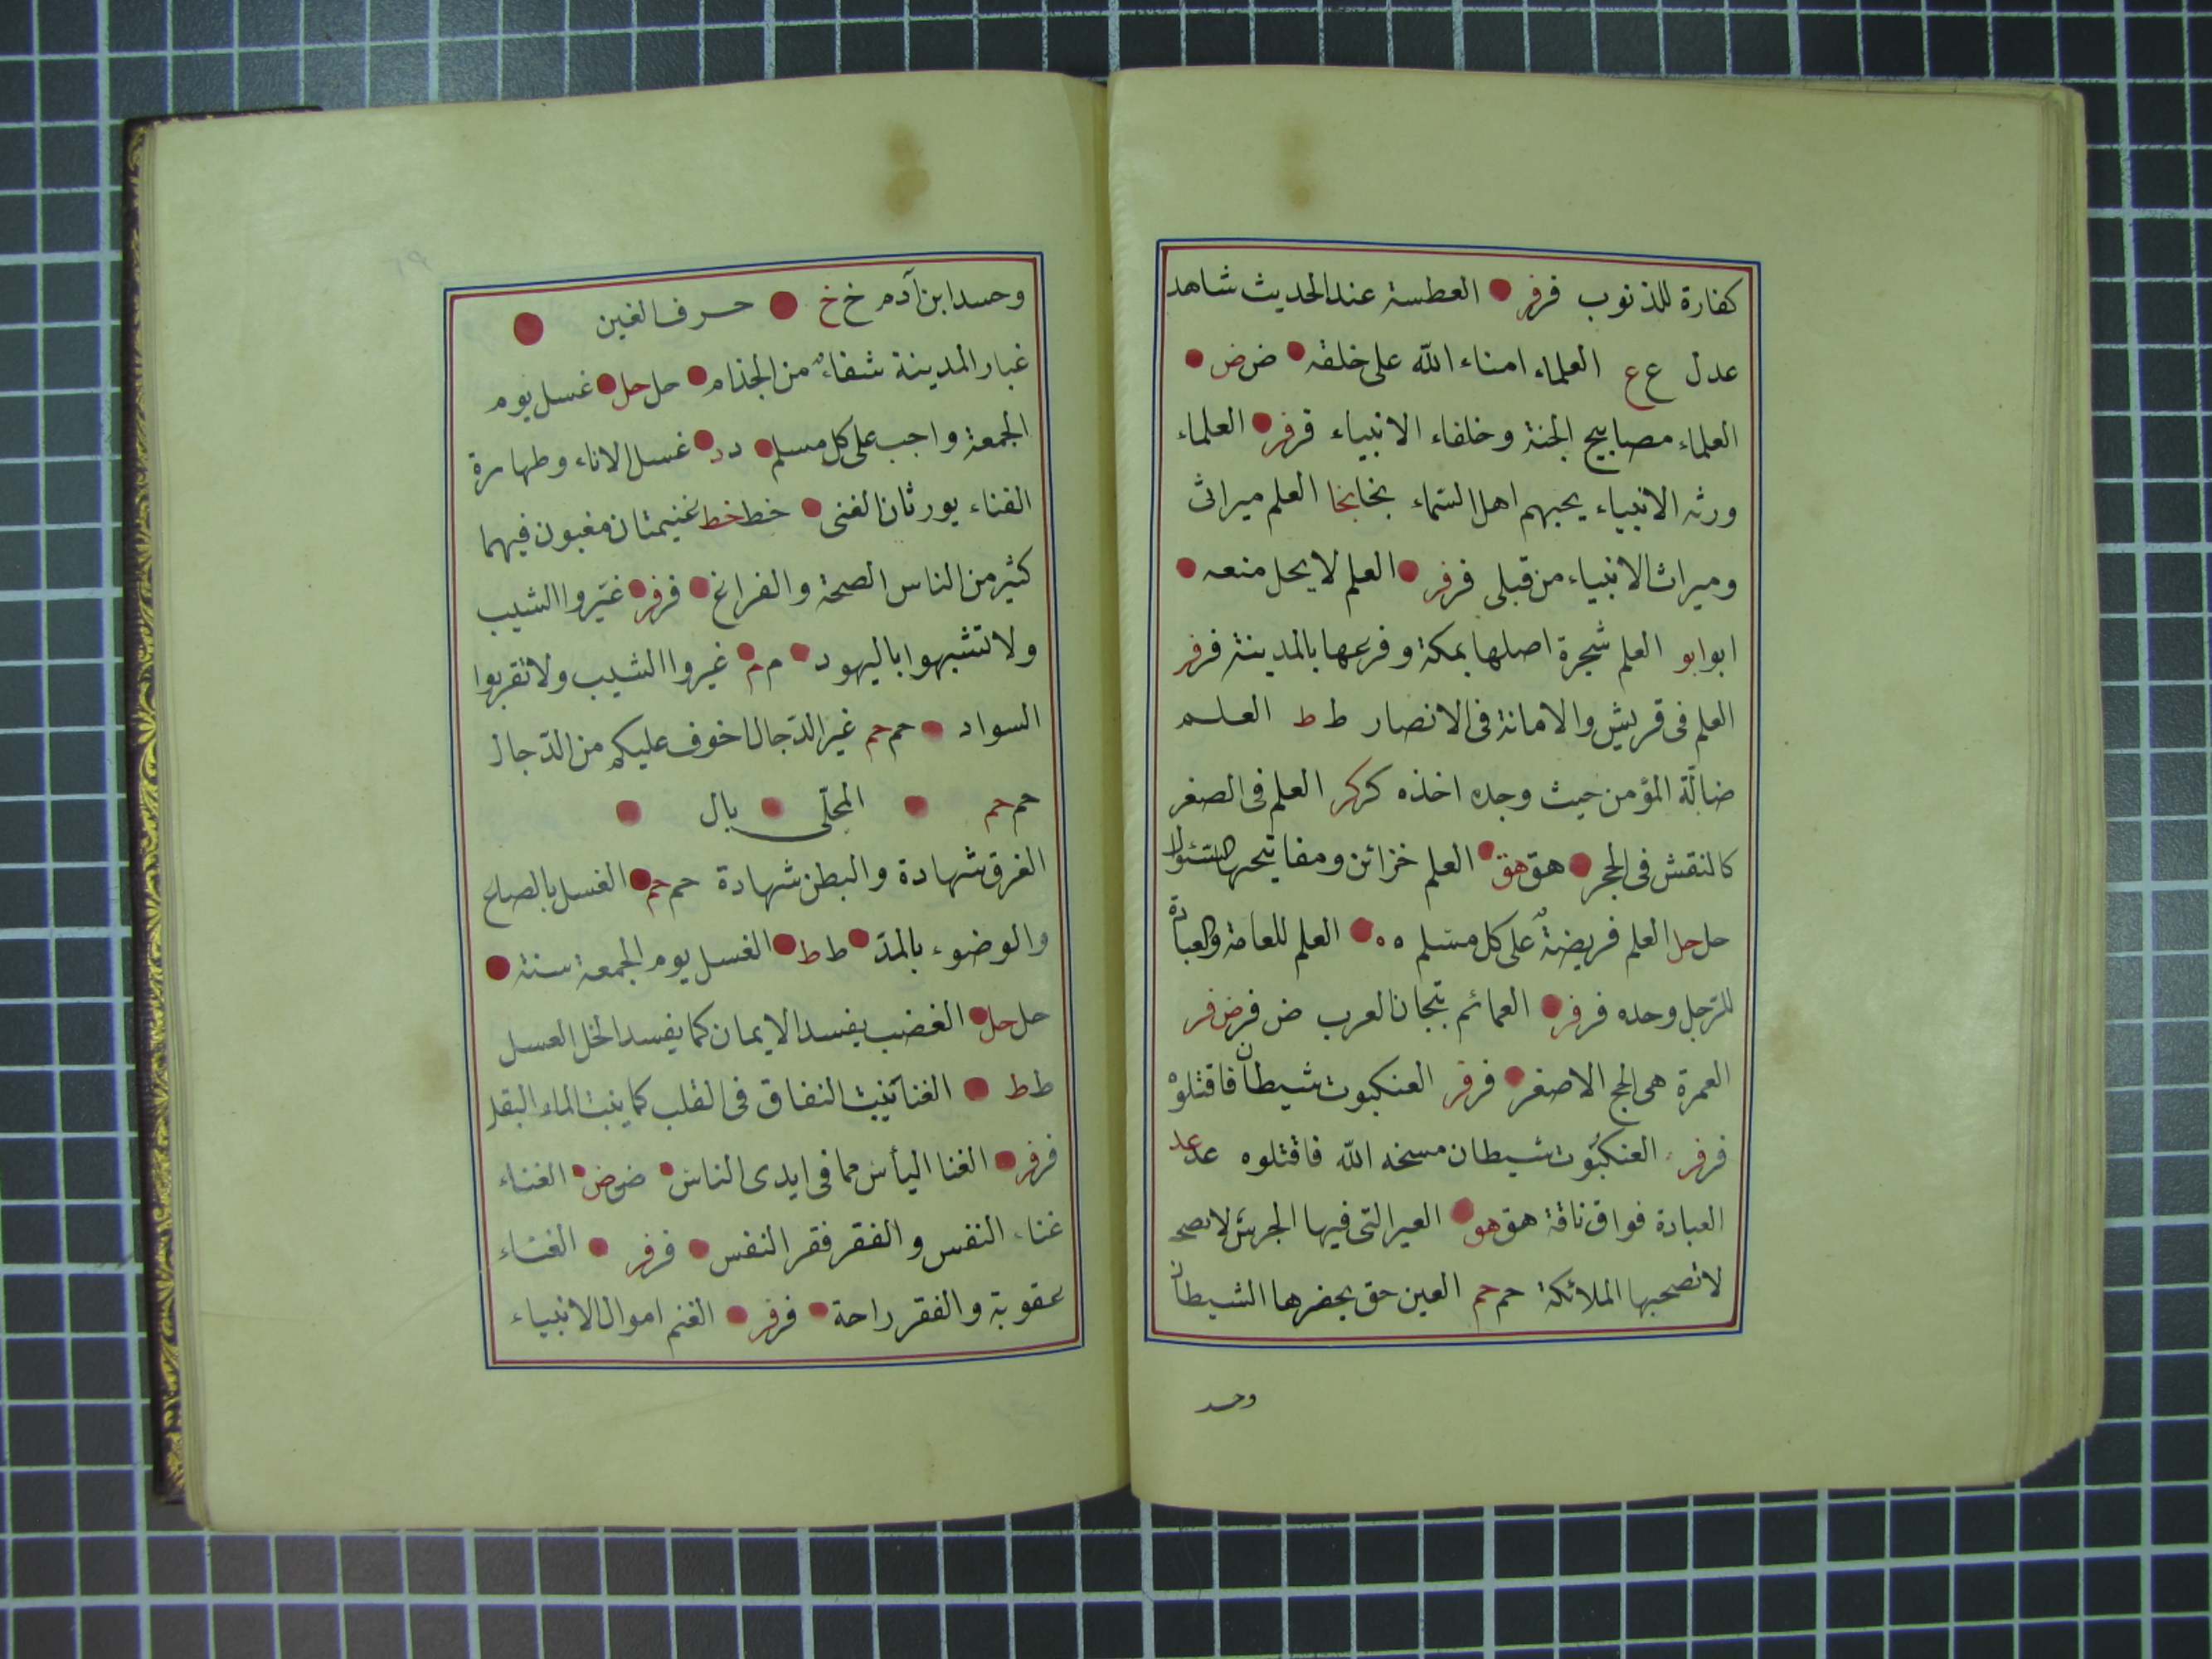 كفارة للذنوب فر فر العطسة عند الحديث شاهد
عدل ع ع العلماء امناء الله على خلقه ض ض
العلماء مصابيح الجنة وخلفاء الانبياء فر فر العلماء
ورثه الانبياء يحبهم اهل السّماء بخا بخا العلم ميراث
وميراث الانبياء من قبلى فر فر العلم لا يحل منعه
ابو ابو العلم شجرة اصلها بمكة وفرعها بالمدينة فر فر
العلم فى قريش والامانة فى الانصار ط ط العلم
ضالّة المؤمن حيث وجده اخذه كر كر العلم فى الصغر
كالنقش فى الحجر هق هق العلم خزائن ومفاتيحها السّئوال
حل حل العلم فريضةٌ على كل مسلم ه ه العلم للعامة والعبادة
للرّجل وحده فر فر العمائم تيجان العرب ض فر ض فر
العمرة هى الحج الاصغر فر فر العنكبوت شيطان فاقتلوه
فر فر العنكبوت شيطان مسخه الله فاقتلوه عد عد
العبادة فواق ناقة هق هو العير التى فيها الجرس لا تصح
لا تصحبها الملائكة حم حم العين حق يحضرها الشيطان
وحسد
وحسد ابن آدم خ خ حرف الغين
غبار المدينة شفاءٌ من الجذام حل حل غسل يوم
الجمعة واجب على كل مسلم د د غسل الاناء وطهارة
الفناء يورثان الغنى خط خط غنيمتان مغبون فيهما
كثير من الناس الصحة والفراغ فر فر غيّروا الشيب
ولا تشبهوا باليهود م م غيروا الشيب ولا تقربوا
السواد حم حم غير الدّجال اخوف عليكم من الدّجال
حم حم المحلّى بال
الغرق شهادة والبطن شهادة حم حم الغسل بالصاع
والوضوء بالمدّ ط ط الغسل يوم الجمعة سنة
حل حل الغضب يفسد الايمان كما يفسد الخل العسل
ط ط الغنا ينبت النفاق فى القلب كما ينبت الماء البقل
فر فر الغنا اليأس مما فى ايدى الناس ض ض الغناء
غناء النفس والفقر فقر النفس فر فر الغناء
عقوبة والفقر راحة فر فر الغنم اموال الانبياء